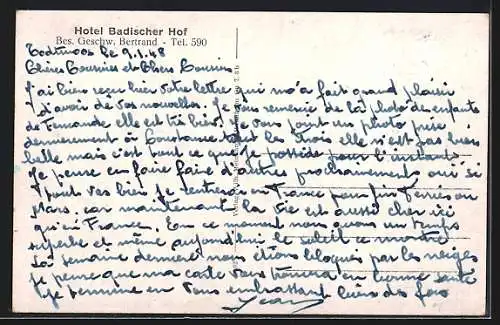 Hotel Badischer Hof
Bes. Geschw. Bertrand - Tel. 590
Todtmoos le 9.1.48
Chères Cousines et Chers Cousins
J'ai bien reçu hier votre lettre qui m'a fait grand plaisir
d'avoir de vos nouvelles. Je vous remercie de la photo des enfants
de Fernande elle est très bien. Je vous joint un photo prise
dernièrement à Constance tous les trois elle n'est pas bien
belle mais c'est tout ce que je possède pour l'instant
Je pense en faire faire d'autres prochainement oui si
tout vas bien je rentrerai en France pour fin Février ou
Mars car maintenant la vie est aussi cher ici
qu'en France. En ce moment nous avons un temps
superbe et même aujourd'hui le soleil se montre
La semaine dernière nous étions bloqués par les neiges
Je pense que ma carte vous trouvera en bonne santé
Je termine en vous embrassant biens des fois
Jean